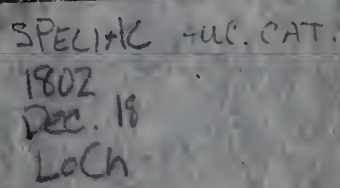 SPECIAL -UC. CAT.
1802
Dec. 18
LoCh